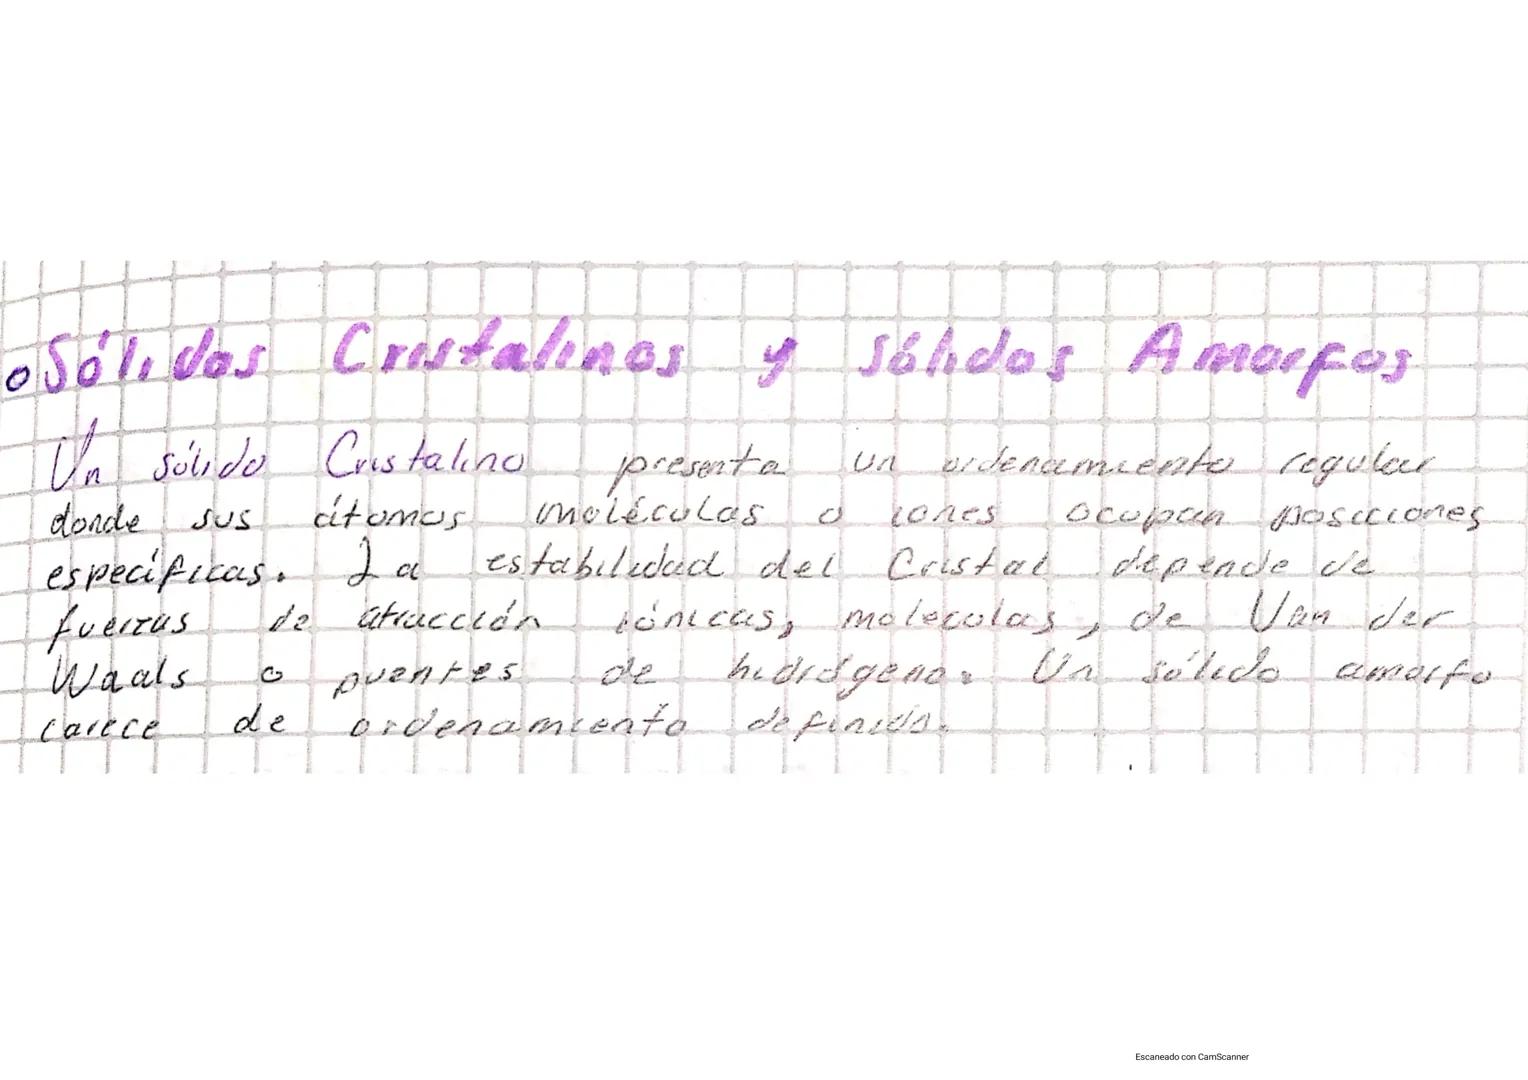 Sólidos Cristalinos y sólidos Amorfos
Un sólido Cristalino presenta un ordenamiento regular
donde sus átomos moléculas o iones ocupan posiciones
específicas. La estabilidad del Cristal depende de
fuerzas de atracción iónicas, moleculas, de Van der
Waals o puentes de hidrógeno. Un sólido amorfo
carece de ordenamiento definido.
Escaneado con CamScanner